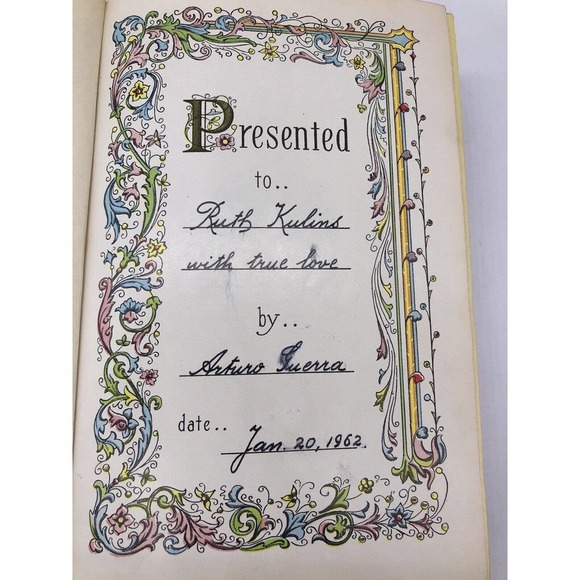 Presented
to..
Ruth Kulins
with true love
by..
Arturo Guerra
date..
Jan. 20, 1962.